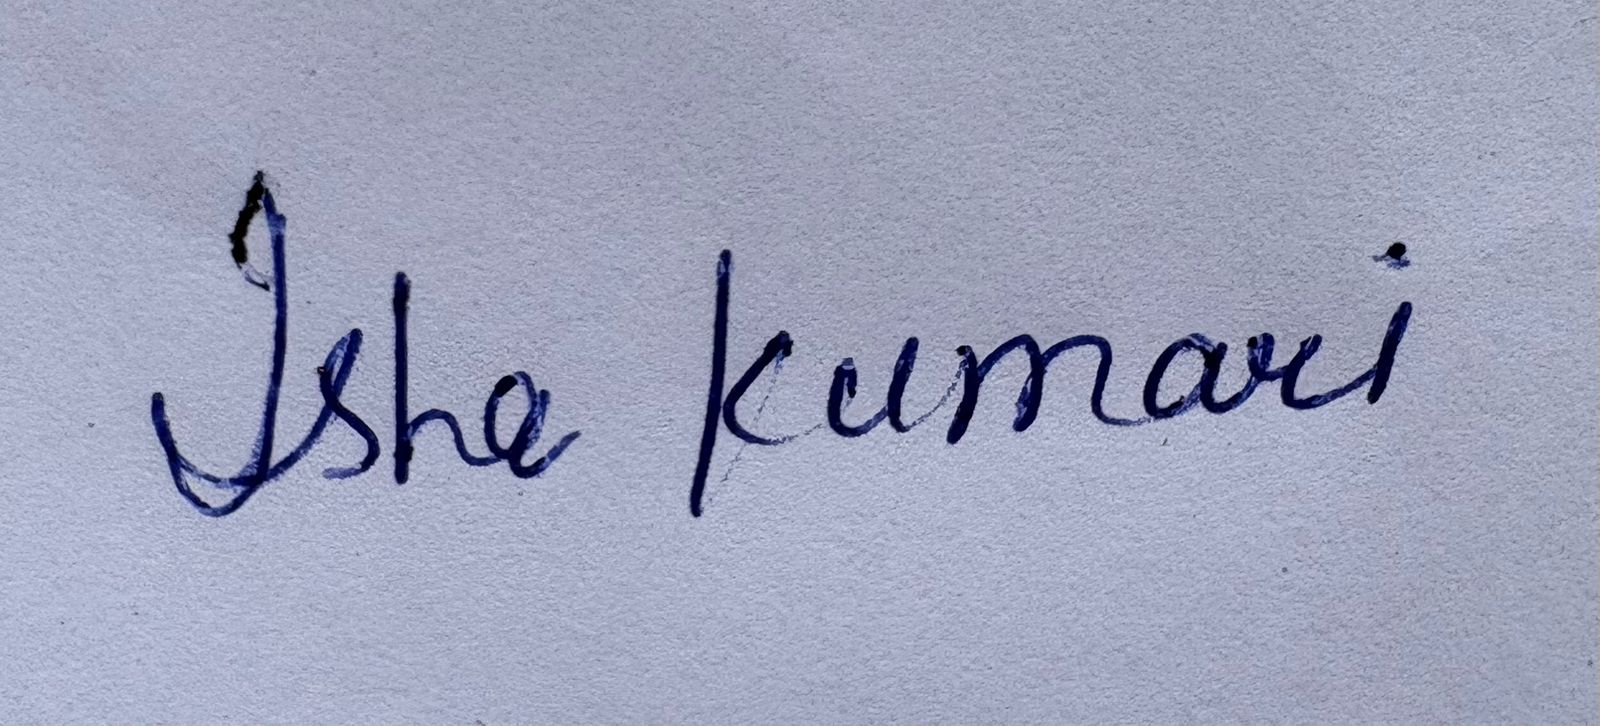 Isha Kumari